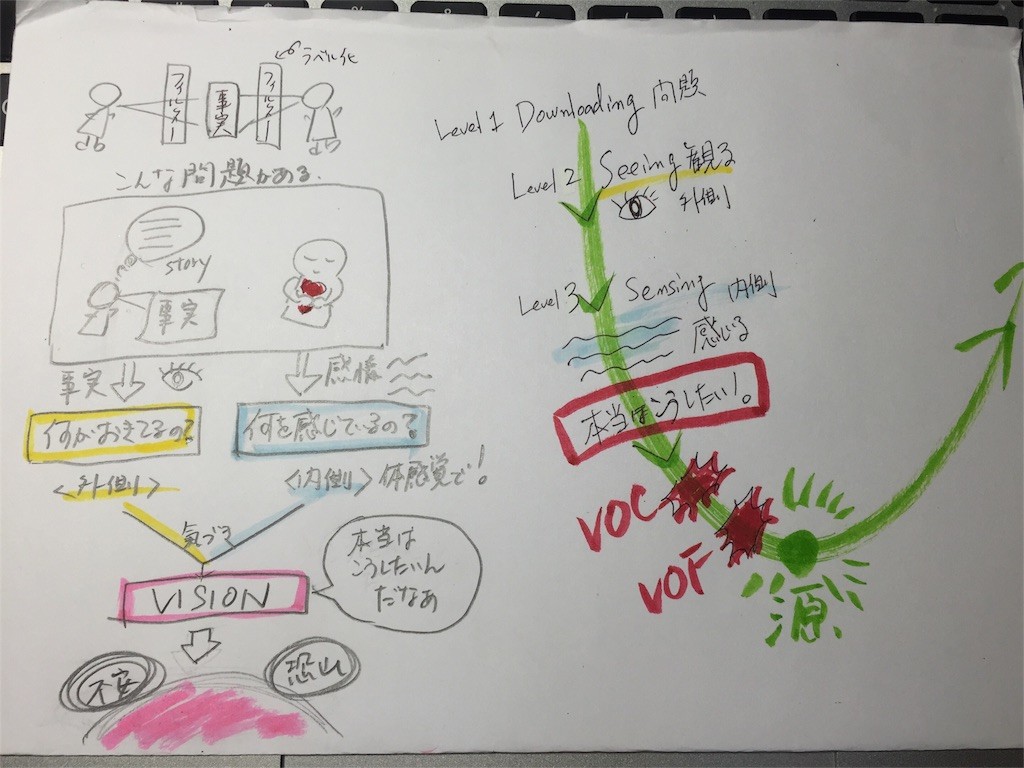 ラベル化
フィルター
事実
フィルター
こんな問題がある.
story
事実
事実
感情
何がおきてるの?
何を感じているの?
<外側>
<内側> 体感覚で!
VISION
本当は
こうしたいん
だなぁ
不安
Level 1 Downloading 問題
Level 2 Seeing 観る
外側
Level 3 Sensing 内側
感じる
本当はこうしたい!。
VOC
VOF
源